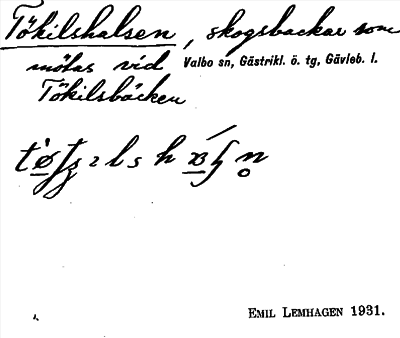 Tökilshalsen, skogsbackar som
mötas vid Valbo sn, Gästrikl. ö. tg, Gävleb. l.
Tökilsbäcken
EMIL LEMHAGEN 1931.